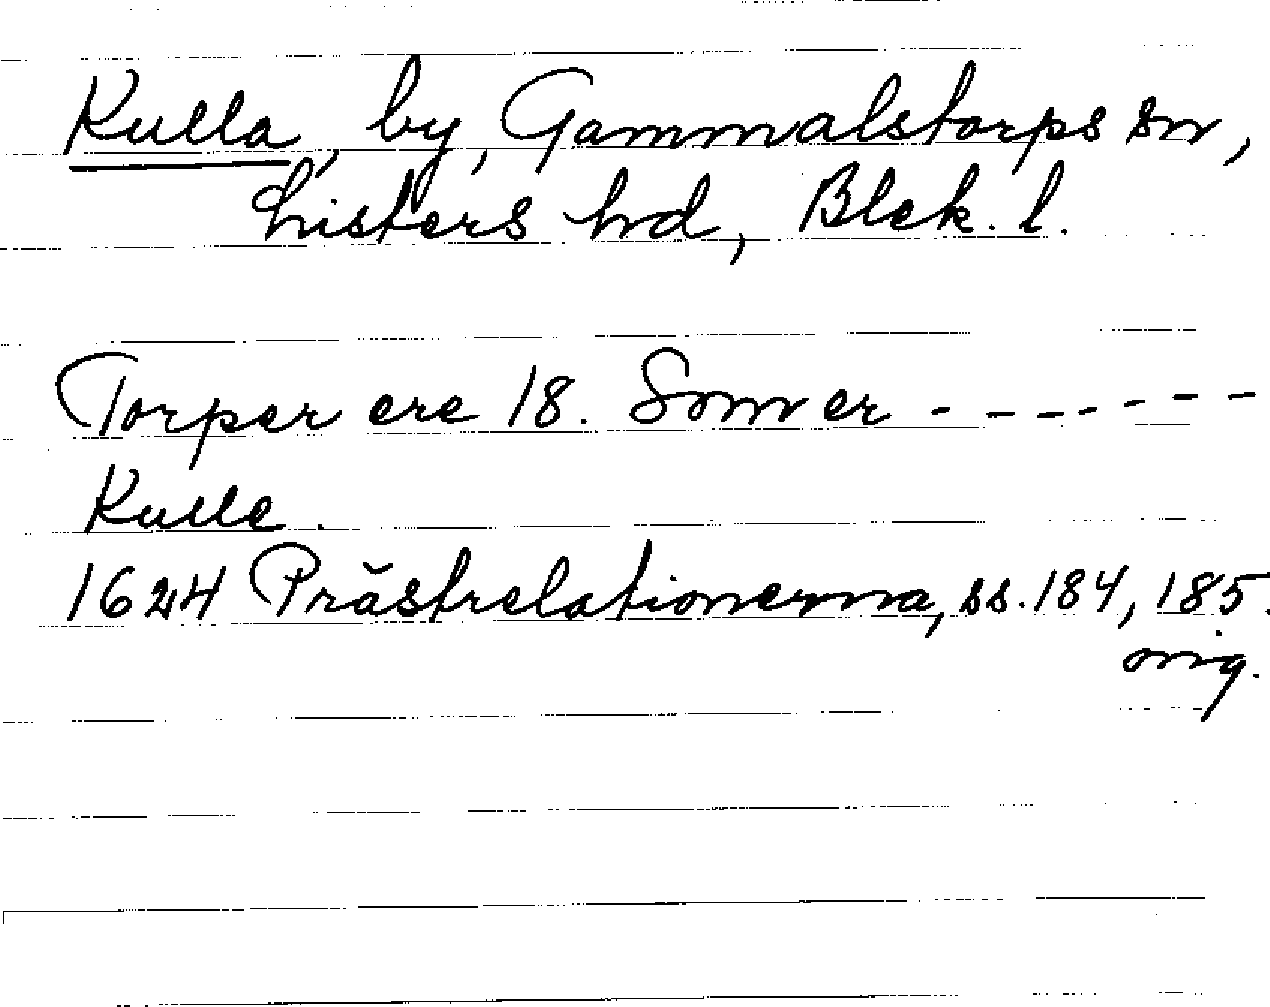 Kulla, by, Gammalstorps sn,
Listers hd, Blek. l.
Torper ere 18. Somer - - - - - - -
Kulle.
1624 Prästrelationerna, ss. 184, 185.
orig.